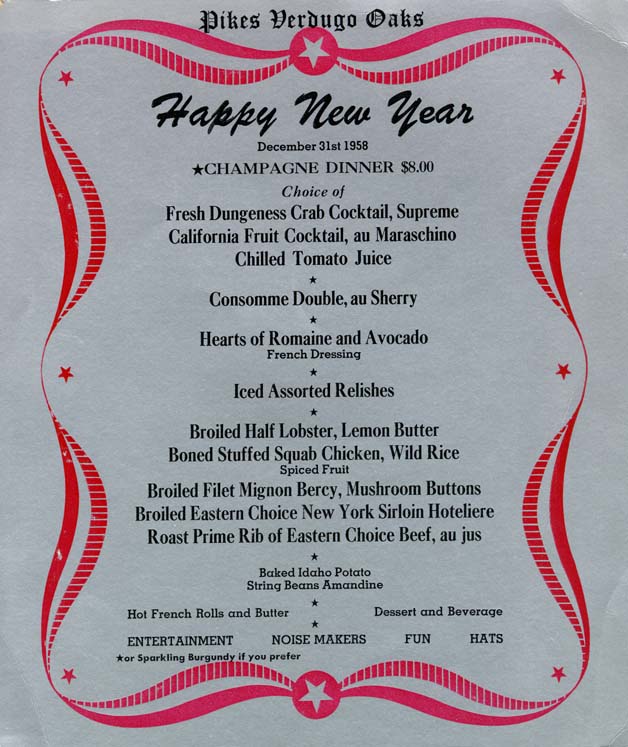 Pikes Verdugo Oaks
Happy New Year
December 31st 1958
★CHAMPAGNE DINNER $8.00
Choice of
Fresh Dungeness Crab Cocktail, Supreme
California Fruit Cocktail, au Maraschino
Chilled Tomato Juice
★
Consomme Double, au Sherry
★
Hearts of Romaine and Avocado
French Dressing
★
Iced Assorted Relishes
★
Broiled Half Lobster, Lemon Butter
Boned Stuffed Squab Chicken, Wild Rice
Spiced Fruit
Broiled Filet Mignon Bercy, Mushroom Buttons
Broiled Eastern Choice New York Sirloin Hoteliere
Roast Prime Rib of Eastern Choice Beef, au jus
★
Baked Idaho Potato
String Beans Amandine
★
Hot French Rolls and Butter Dessert and Beverage
★
ENTERTAINMENT NOISE MAKERS FUN HATS
★or Sparkling Burgundy if you prefer